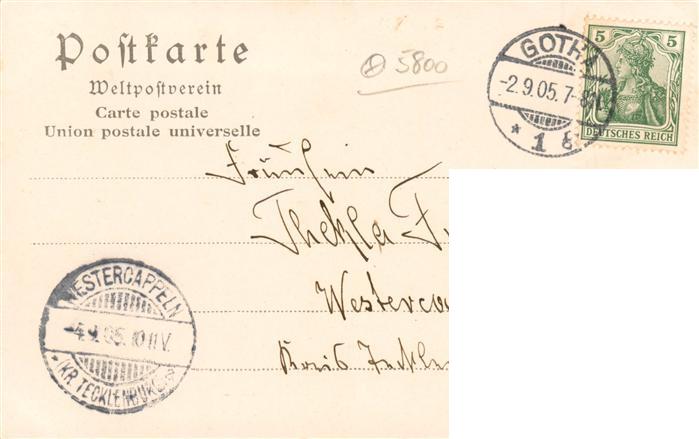 Postkarte
Weltpostverein
Carte postale
Union postale universelle
5800
GOTHA
-2.9.05.7-8N.
* 1 c *
5 5
DEUTSCHES REICH
Fräulein
Thekla
Westerca
Kreis Teckle
WESTERCAPPELN
-4.9.05.10-11V.
* (KR. TECKLENBURG) *